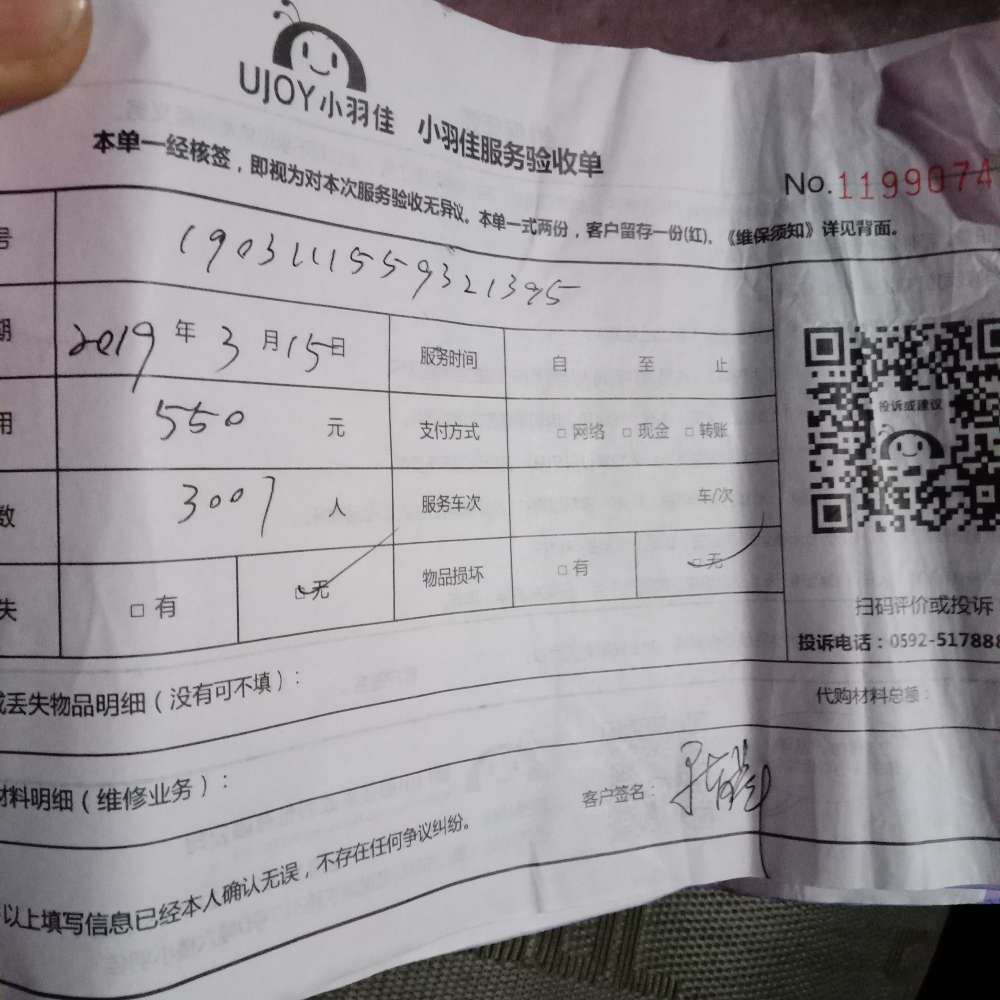 UJOY小羽佳 小羽佳服务验收单
No.1199074
本单一经核签，即视为对本次服务验收无异议。本单一式两份，客户留存一份(红)。《维保须知》详见背面。
号 1903111559321395
期 2019年3月15日 服务时间 自 至 止
用 550 元 支付方式 □网络 □现金 □转账
数 3007 人 服务车次 车/次
失 □有 □无 物品损坏 □有 □无
投诉或建议
扫码评价或投诉
投诉电话：0592-517888
或丢失物品明细（没有可不填）：
代购材料总额：
材料明细（维修业务）：
客户签名：
以上填写信息已经本人确认无误，不存在任何争议纠纷。